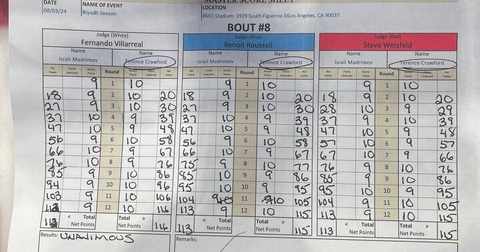 MASTER SCORE SHEET
DATE NAME OF EVENT LOCATION
08/03/24 Riyadh Season BMO Stadium: 3939 South Figueroa St Los Angeles, CA 90037
BOUT #8
Judge (White) Judge (Blue) Judge (Red)
Fernando Villarreal Benoit Roussell Steve Weisfeld
Name Name Name Name Name Name
Israil Madrimov Terence Crawford Israil Madrimov Terence Crawford Israil Madrimov Terence Crawford
Round Round Round
9 1 10 9 1 10 9 1 10
18 9 2 10 20 18 9 2 10 20 18 9 2 10 20
27 9 3 10 30 27 9 3 10 30 28 10 3 9 29
37 10 4 9 39 37 10 4 9 39 37 9 4 10 39
47 10 5 9 48 47 10 5 9 48 47 10 5 9 48
56 9 6 10 58 56 9 6 10 58 57 10 6 9 57
66 10 7 9 67 66 10 7 9 67 67 10 7 9 66
76 10 8 9 76 75 9 8 10 77 76 9 8 10 76
85 9 9 10 86 85 10 9 9 86 85 9 9 10 86
94 9 10 10 96 95 10 10 9 95 95 10 10 9 95
103 9 11 10 106 104 9 11 10 105 104 9 11 10 105
112 9 12 10 116 113 9 12 10 115 113 9 12 10 115
< Total > < Total > < Total >
112 Net Points 116 113 Net Points 115 113 Net Points 115
Results: UNANIMOUS Remarks: